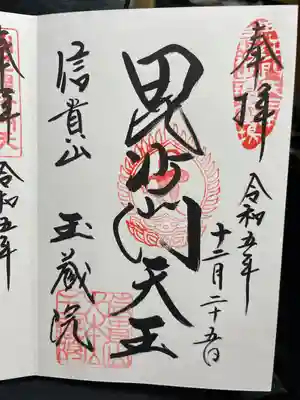 奉拝
令和五年
十二月二十五日
毘沙門天王
信貴山
玉蔵院
奉拝
令和五年